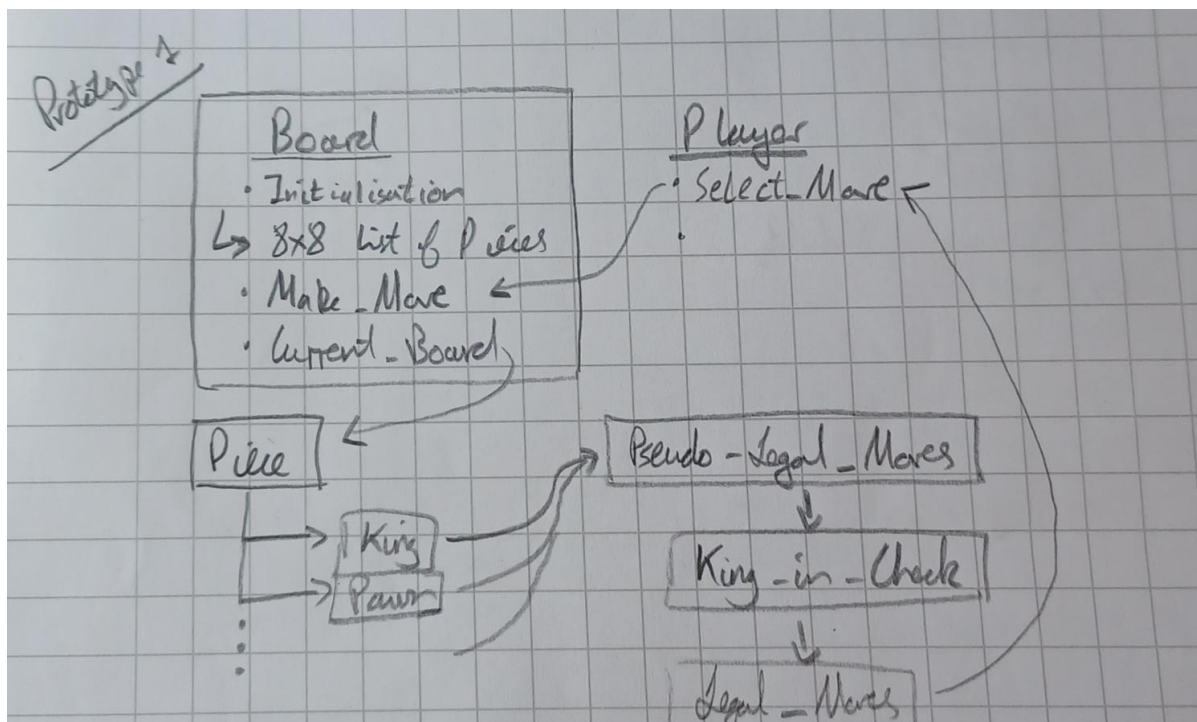 Prototype 1
Board
• Initialisation
↳ 8x8 List of Pieces
• Make_Move
• Current_Board
Player
• Select_Move
•
Piece
King
Pawn
Pseudo-Legal_Moves
King-in-Check
Legal_Moves